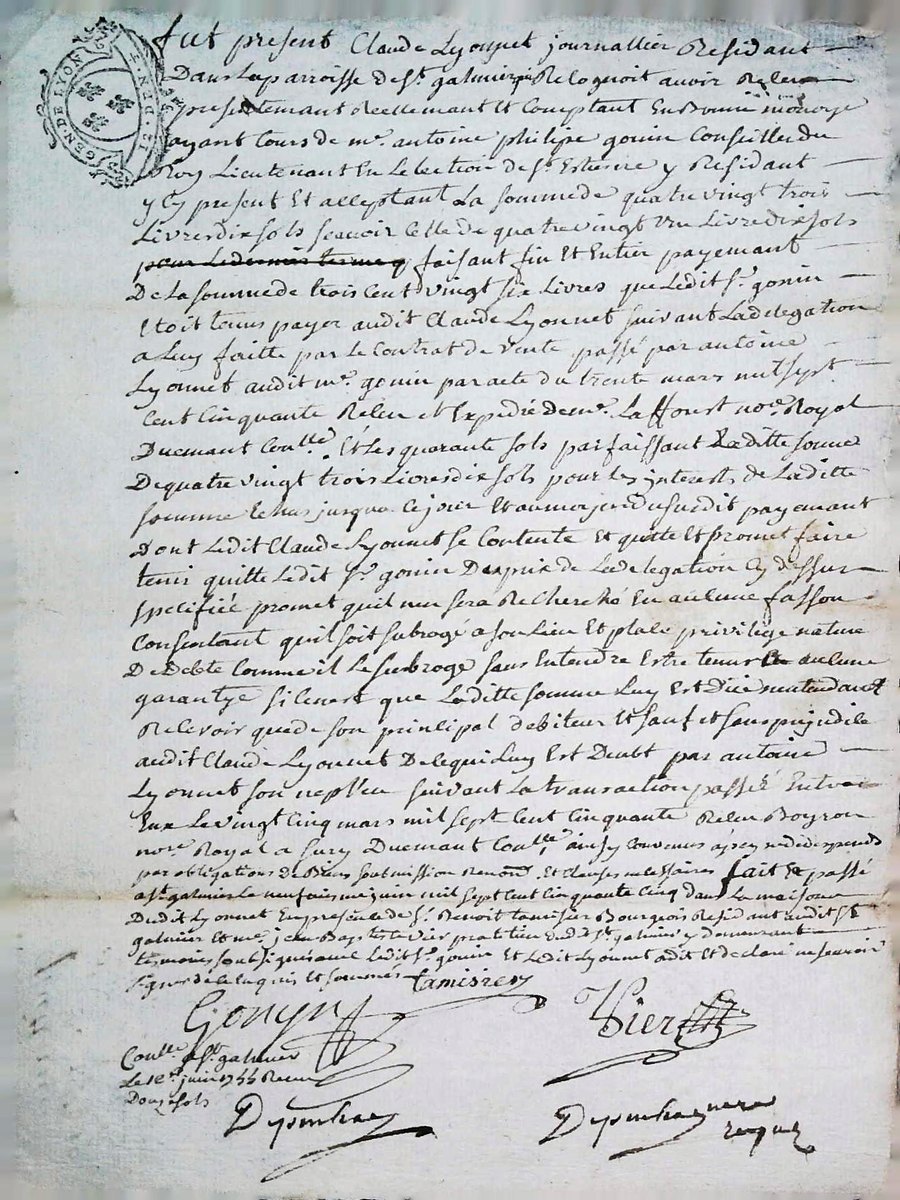 GEN. DE LYON
fut present Claude Lyonnet journallier Residant
Dans La parroisse de St. galmier qui Recognoit avoir Receu
presentemant Reellemant Et Comptant En Bonne monoye
ayant Cours de mr. antoine philipe gonin Conseiller du
Roy Lieutenant En Lelection de St. Estienne y Residant
y Cy present Et acceptant La somme de quatre vingt trois
Livres dix sols scavoir Celle de quatre vingt une Livre dix sols
pour Le dernier terme faisant fin Et Entier payemant
De La somme de trois Cent vingt six Livres que Ledit Sr. gonin
Etoit tenus payer audit Claude Lyonnet suivant La delegation
a Luy faitte par Le Contrat de vente passé par antoine
Lyonnet audit mr. gonin par acte du trente mars mil sept
Cent Cinquante Receu et Expedié de mr. Laffoust nore. Royal
Duemant Conllé. Et Les quarante sols parfaissant Laditte somme
De quatre vingt trois Livres dix sols pour Les interests de Laditte
somme Echus jusqua Ce jour Et au moyen du susdit payemant
Dont Ledit Claude Lyonnet se Contente Et quitte Et promet faire
tenir quitte Ledit Sr. gonin Du prix de La delegation Cy dessus
specifiée promet quil nen sera Recherché En aucune fasson
Consentant quil soit subrogé a son Lieu Et place privilege nature
De Debte Comme il Le subroge sans Entendre Estre tenus aucune
garantye si Cenest que Laditte somme Luy Est Düe nentendant
Recevoir que de son principal debiteur Et sauf et sans prejudice
audit Claude Lyonnet De Ce qui Luy Est Deubt par antoine
Lyonnet son nepveu suivant La transaction passée Entre
Eux Le vingt Cinq mars mil sept Cent Cinquante Receu Boyron
nore. Royal a Sury Duemant Conllé ainsy Convenus a peyne de despends
par obligations de Biens soubmission Renons. Et Clauses necessaires fait Et passé
a St. galmier Le neufaisme juin mil sept Cent Cinquante Cinq dans La maison
Dudit Lyonnet En presence de Sr. Benoit tamisier Bourgeois Residant audit St.
galmier Et mr. jean Baptiste Vier praticien dudit St. galmier y demeurant
temoins soubsignés avec Ledit Sr. gonin Et Ledit Lyonnet a dit Et declaré ne scavoir
signer de Ce Enquis Et sommés tamisier
Gonyn Vier
Conllé a St. galmier
Le 12e. juin 1755 Receu
Douze sols